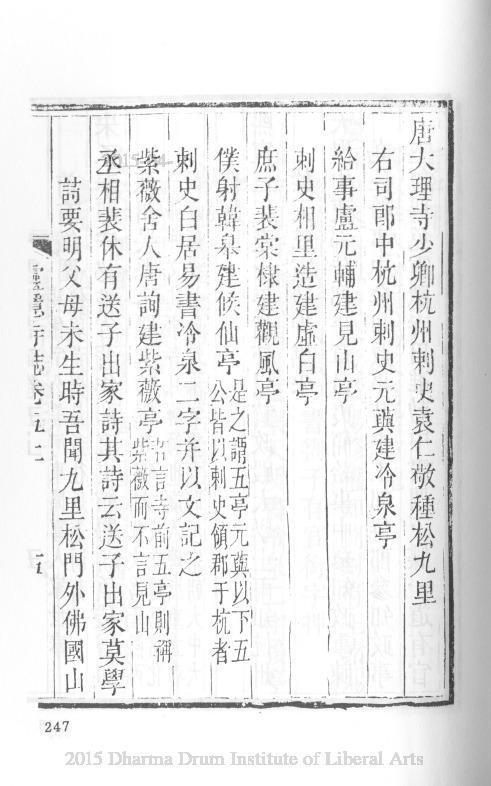 唐大理寺少卿杭州刺史袁仁敬種松九里
右司郎中杭州刺史元藇建冷泉亭
給事盧元輔建見山亭
刺史相里造建虛白亭
庶子裴棠棣建觀風亭
僕射韓皋建候仙亭是之謂五亭元藇以下五公皆以刺史領郡于杭者
刺史白居易書冷泉二字并以文記之
紫薇舍人唐詢建紫薇亭若言寺前五亭則稱紫薇而不言見山
丞相裴休有送子出家詩其詩云送子出家莫學
詩要明父母未生時吾聞九里松門外佛國山
寺誌卷五上
五
247
2015 Dharma Drum Institute of Liberal Arts